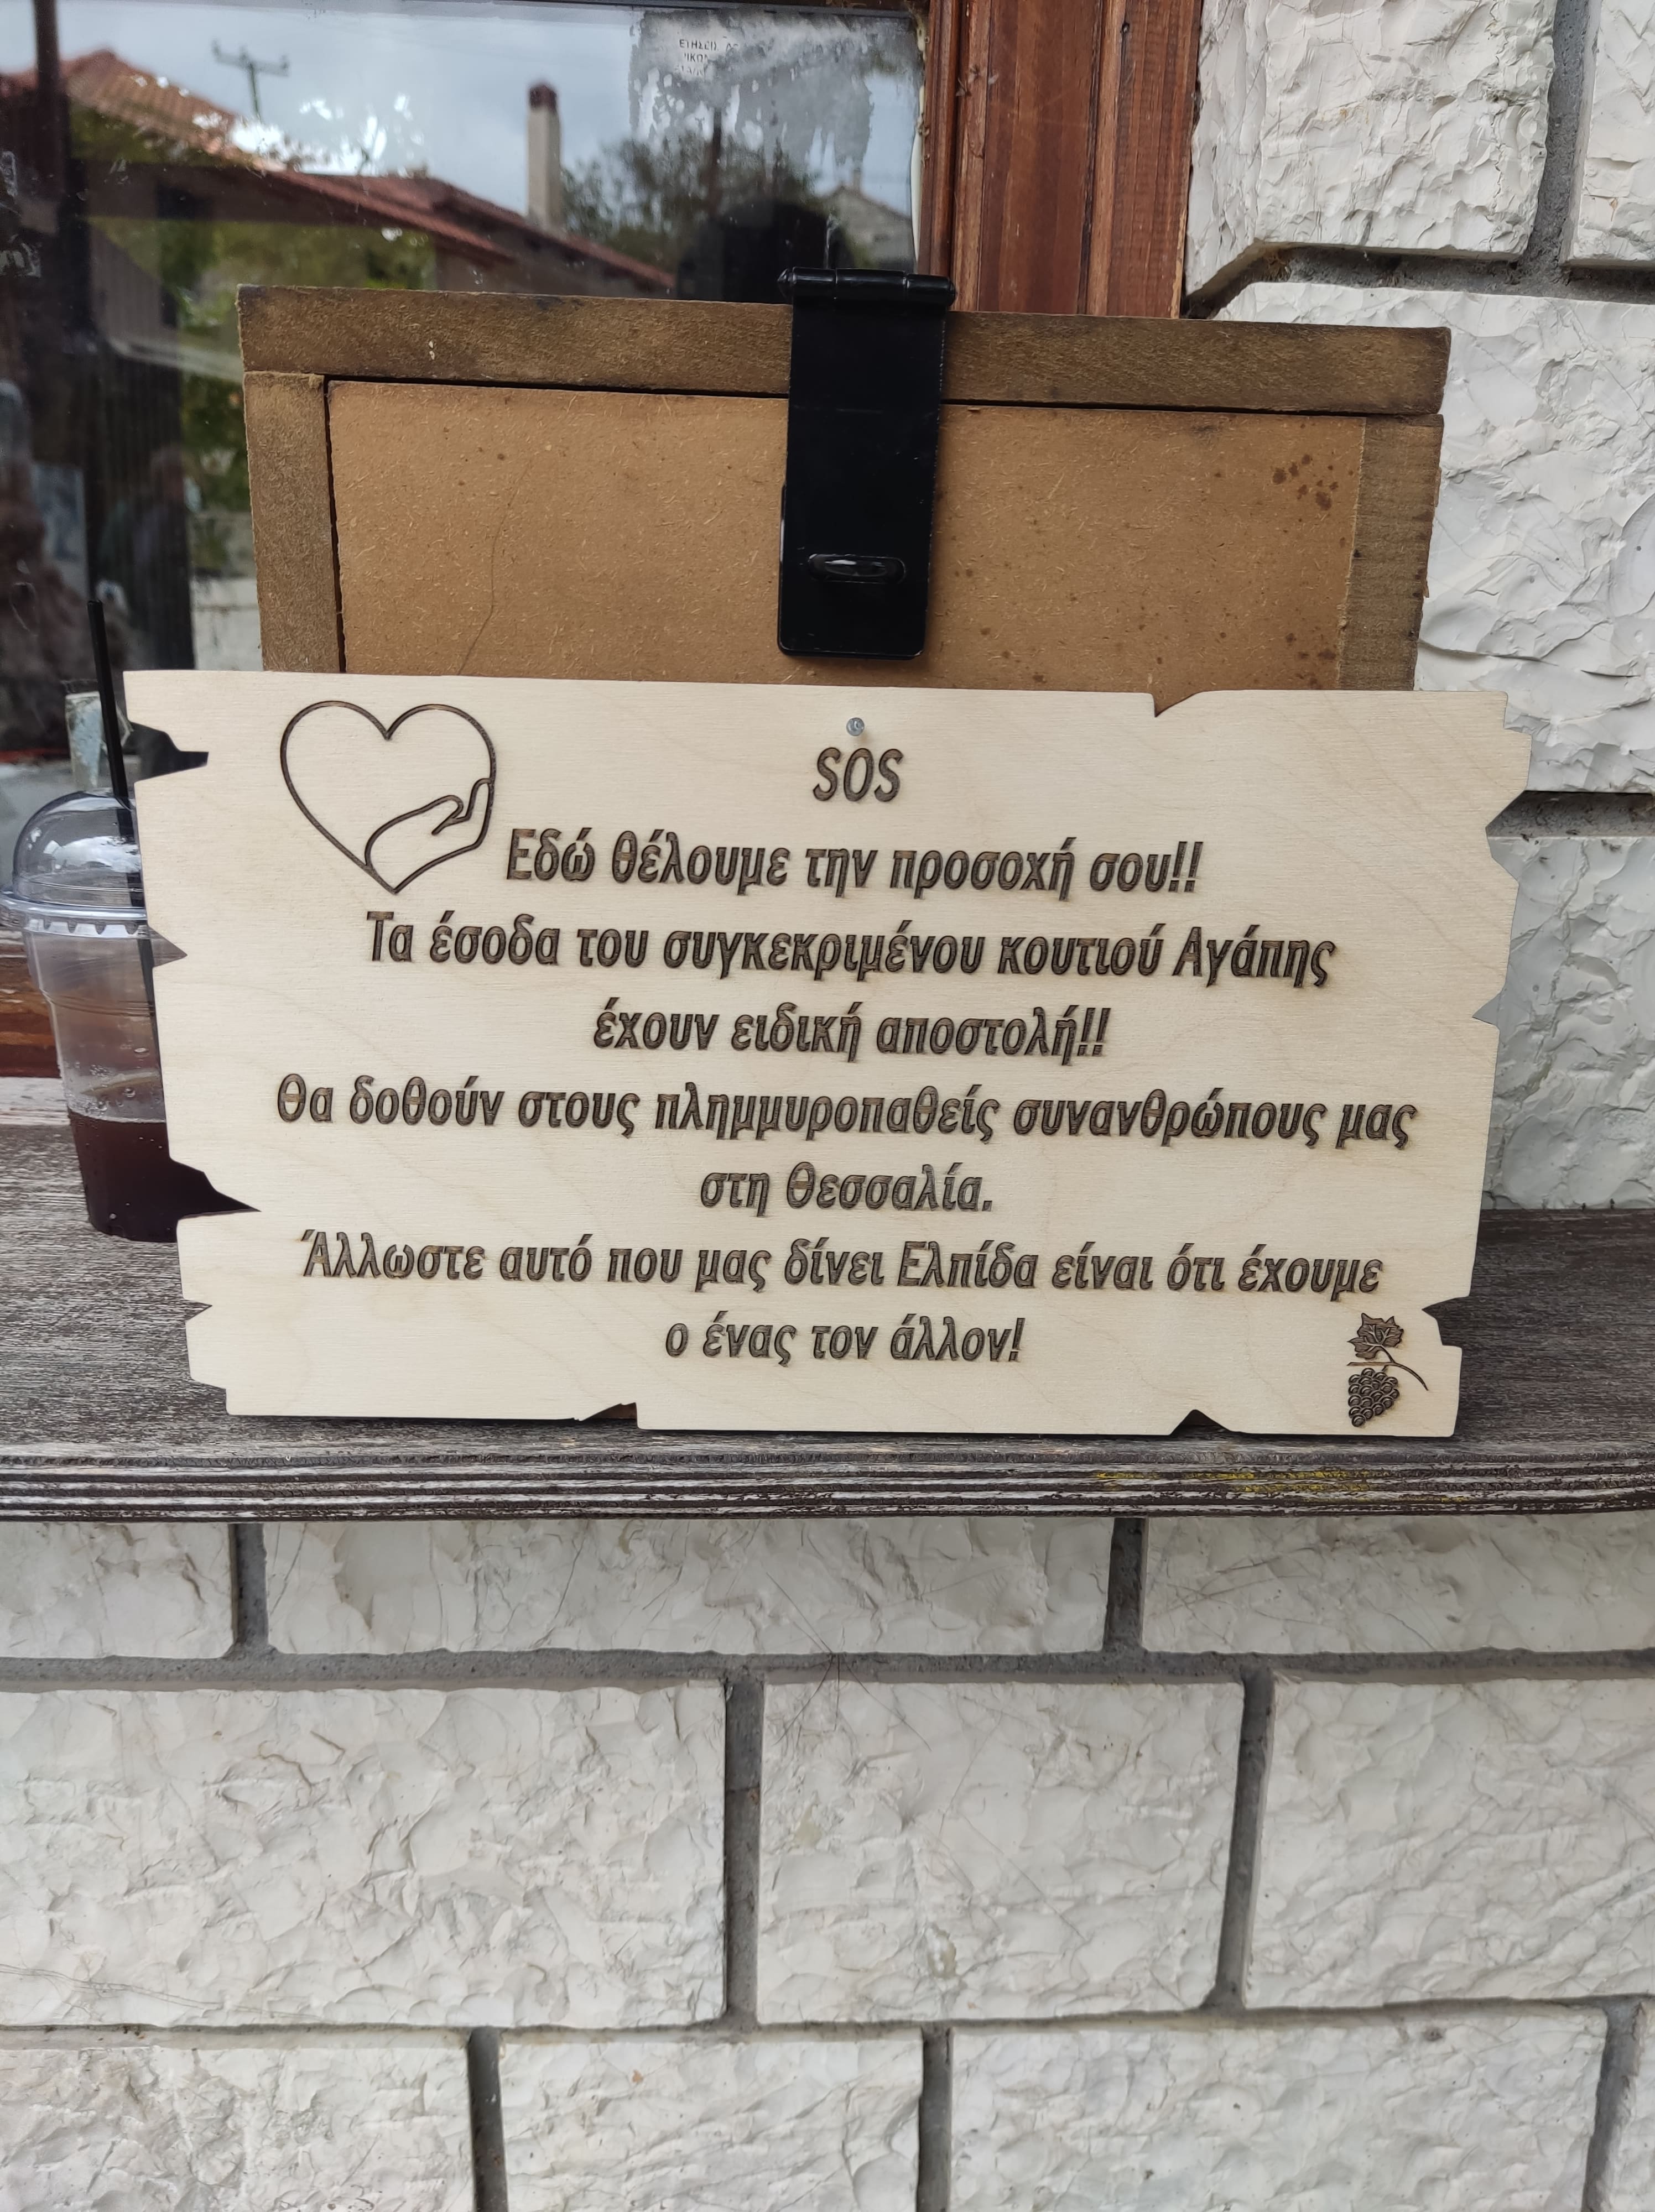 SOS
Εδώ θέλουμε την προσοχή σου!!
Τα έσοδα του συγκεκριμένου κουτιού Αγάπης
έχουν ειδική αποστολή!!
Θα δοθούν στους πλημμυροπαθείς συνανθρώπους μας
στη Θεσσαλία.
Άλλωστε αυτό που μας δίνει Ελπίδα είναι ότι έχουμε
ο ένας τον άλλον!